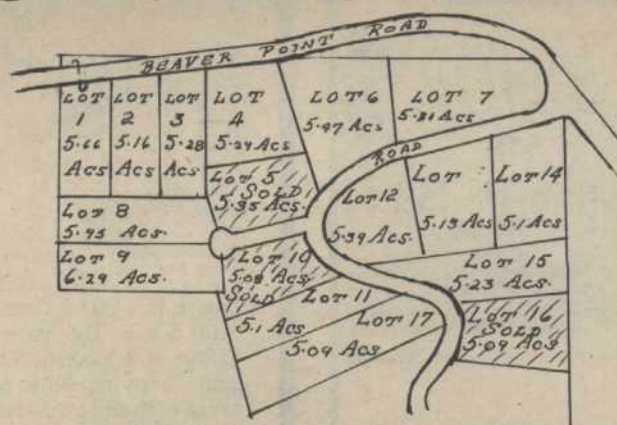 BEAVER POINT ROAD
LOT 1
5.66 Acs
LOT 2
5.16 Acs
LOT 3
5.28 Acs
LOT 4
5.29 Acs
LOT 6
5.47 Acs
LOT 7
5.31 Acs
ROAD
LOT 5
SOLD
5.35 Acs.
LOT 12
5.39 Acs.
LOT
5.13 Acs.
LOT 14
5.1 Acs
LOT 8
5.95 Acs.
LOT 9
6.29 Acs.
LOT 10
5.08 Acs.
SOLD
LOT 11
5.1 Acs
LOT 17
5.09 Acs
LOT 15
5.23 Acs.
LOT 16
SOLD
5.09 Acs